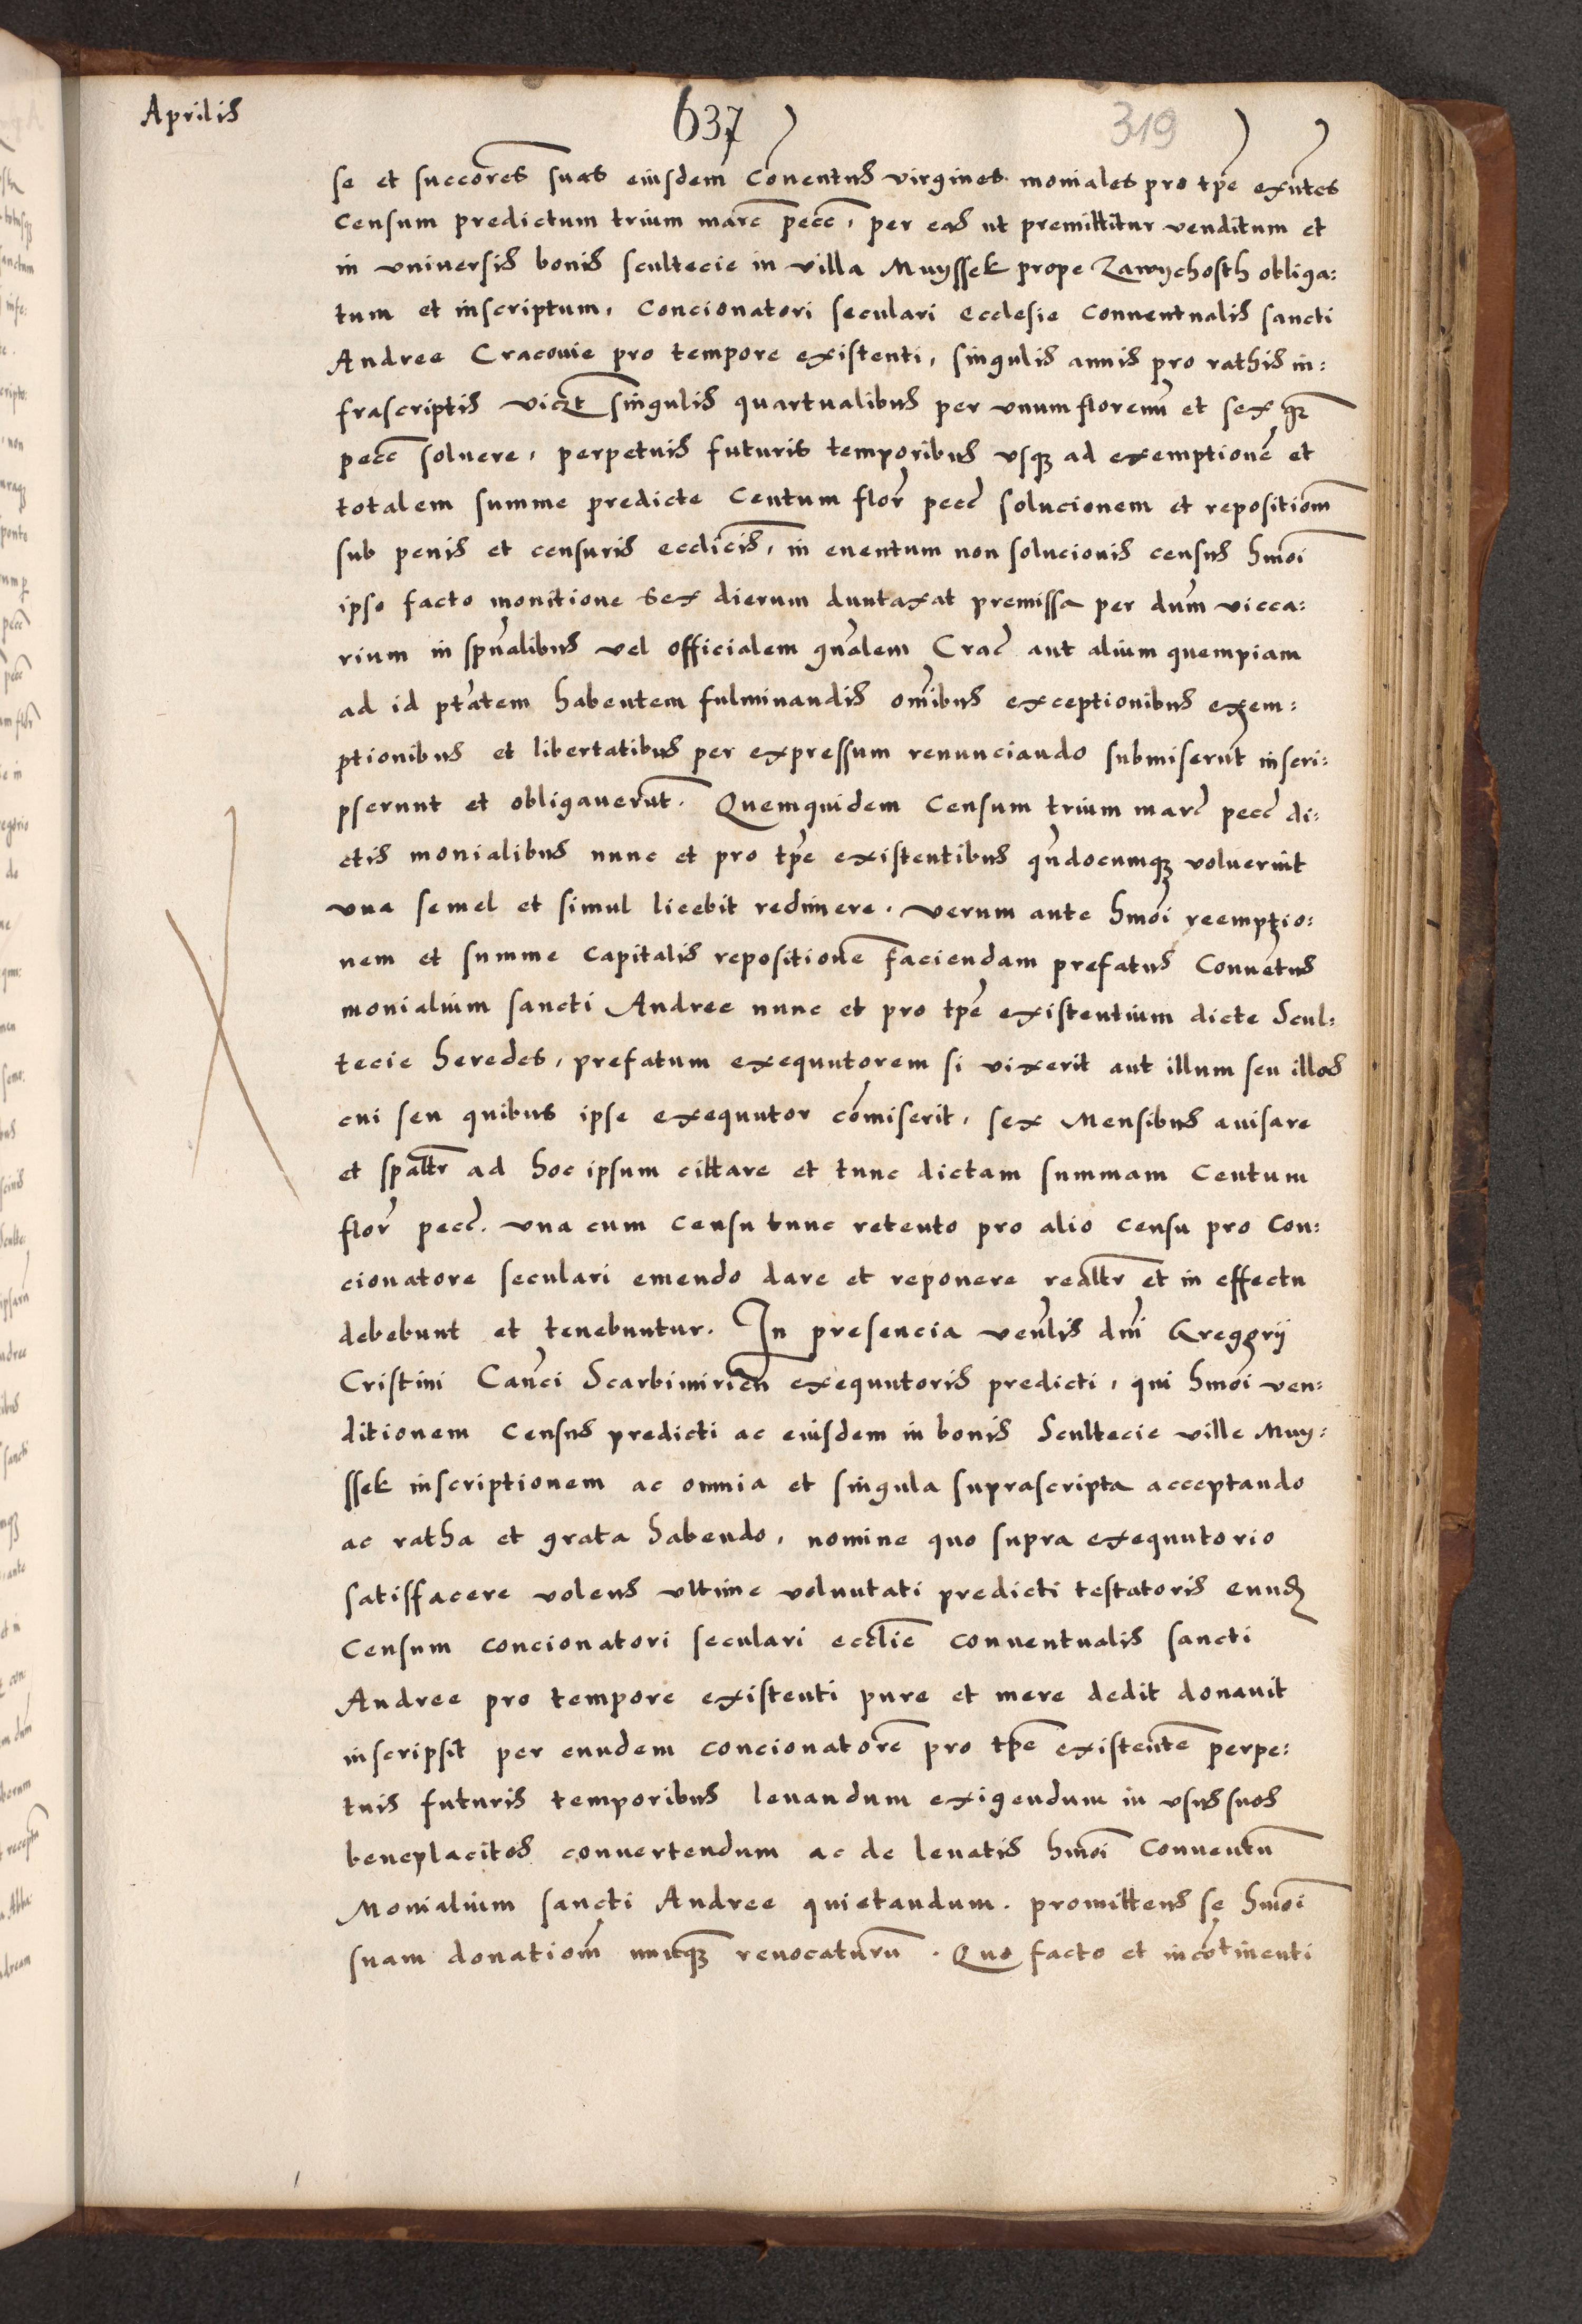 Aprilis
637
319
se et succores suas eiusdem Conentus virgines moniales pro tpe exntes
Censum predictum trium marc pecc, per eas ut premittitur venditum et
in vniuersis bonis scultecie in villa Muyssek prope Zawychosth obliga:
tum et inscriptum, Concionatori seculari Ecclesie Conuentualis sancti
Andree Cracouie pro tempore existenti, singulis annis pro rathis in:
frascriptis viczt singulis quartualibus per vnum florenu et sex gr
pecc soluere, perpetuis futuris temporibus vsqz ad exemptione et
totalem summe predicte Centum flor pecc solucionem et repositiom
sub penis et censuris ecclicis, in euentum non solucionis census hmoi
ipso facto monitione sex dierum duntaxat premissa per dum vicca:
rium in spualibus vel officialem gnalem Crac aut alium quempiam
ad id ptatem habentem fulminandis omibus exceptionibus exem:
ptionibus et libertatibus per expressum renunciando submiserut inscri:
pserunt et obligauerut. Quemquidem Censum trium marc pecc di:
ctis monialibus nunc et pro tpe existentibus qndocumqz voluerint
vna semel et simul licebit redimere. verum ante hmoi reemptio:
nem et summe Capitalis repositione faciendam prefatus Conuetus
monialium sancti Andree nunc et pro tpe existentium dicte Scul:
tecie heredes, prefatum exequutorem si vixerit aut illum seu illos
cui seu quibus ipse exequutor comiserit, sex Mensibus auisare
et spaltr ad hoc ipsum cittare et tunc dictam summam Centum
flor pecc. vna cum Censu tunc retento pro alio censu pro Con:
cionatore seculari emendo dare et reponere realtr et in effectu
debebunt et tenebuntur. In presencia venlis dni Gregorij
Cristini Canci Scarbimirien exequutoris predicti, qui hmoi ven:
ditionem Census predicti ac eiusdem in bonis Scultecie ville Muy:
ssek inscriptionem ac omnia et singula suprascripta acceptando
ac ratha et grata habendo, nomine quo supra exequutorio
satisfacere volens vltime voluntati predicti testatoris eund
Censum concionatori seculari ecclie conuentualis sancti
Andree pro tempore existenti pure et mere dedit donauit
inscripsit per eundem concionatore pro tpe existente perpe:
tuis futuris temporibus leuandum exigendum in vsus suos
beneplacitos conuertendum ac de leuatis hmoi Conuentu
Monialium sancti Andree quietandum. promittens se hmoi
suam donatiom nuqz reuocaturu. Quo facto et incotinenti